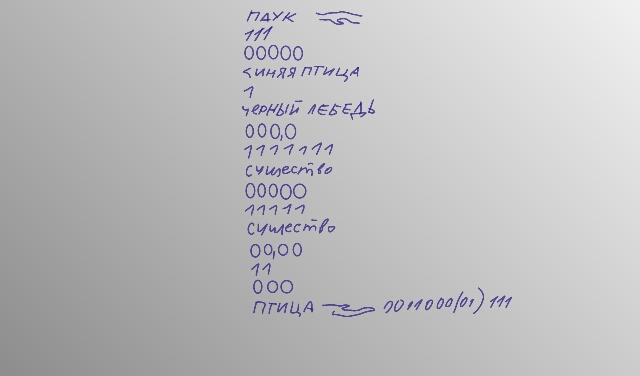 ПАУК
111
00000
СИНЯЯ ПТИЦА
1
ЧЕРНЫЙ ЛЕБЕДЬ
000,0
1111111
существо
00000
11111
существо
00,00
11
000
ПТИЦА 0011000(01)111